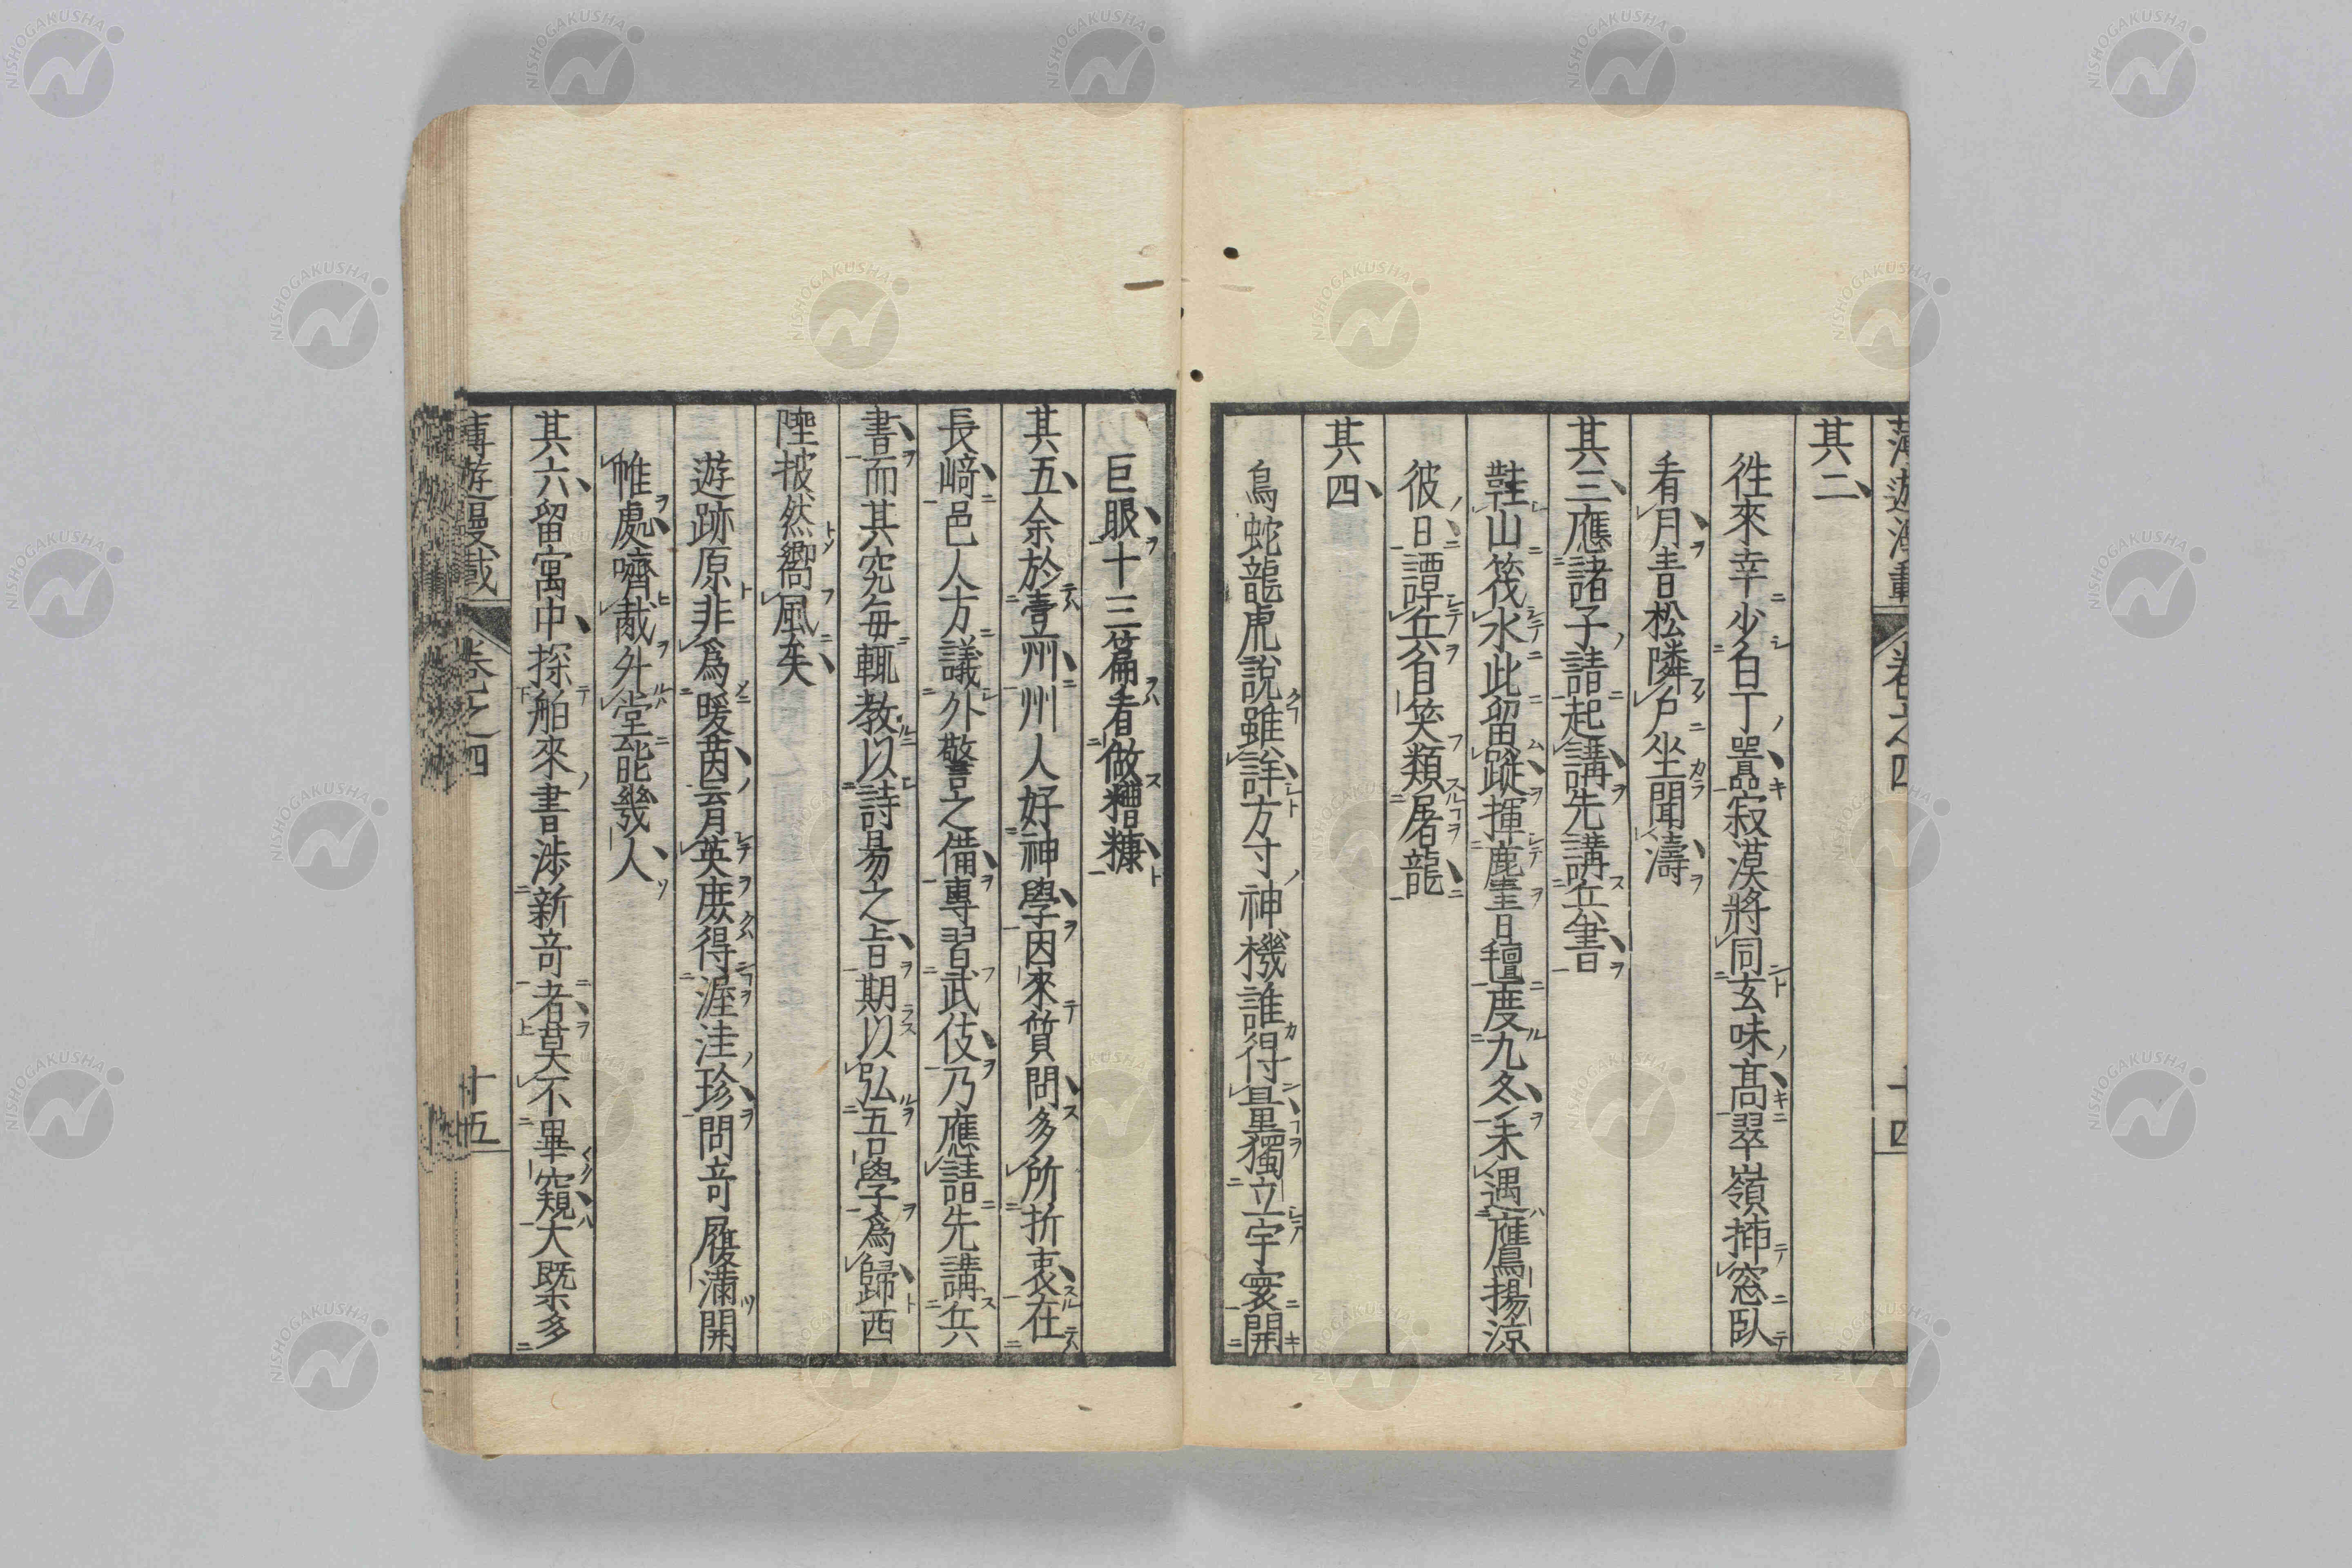 其二
徃來幸少白丁囂寂漠將同玄味髙翠嶺揷窓臥
看月青松隣戸坐聞濤
其三應諸子請起講先講兵書
鞋山筏水此留蹤揮麈
度九冬未遇鷹揚涼
彼日譚兵自笑類屠龍
其四
鳥蛇龍虎說雖詳方寸神機誰得量獨立宇寰開
巨眼十三篇看做糟糠
其五余於壹州州人好神學因來質問多所折衷在
長﨑邑人方議外警之備專習武伎乃應請先講兵
書而其究每輒教以詩易之旨期以弘吾學爲歸西
陸披然嚮風矣
遊跡原非爲暖茵育英庶得渥洼珍問竒履滿開
帷處嚌胾外堂能幾人
其六留寓中探舶來書渉新竒者莫不畢窺大既多
卷之四
十五